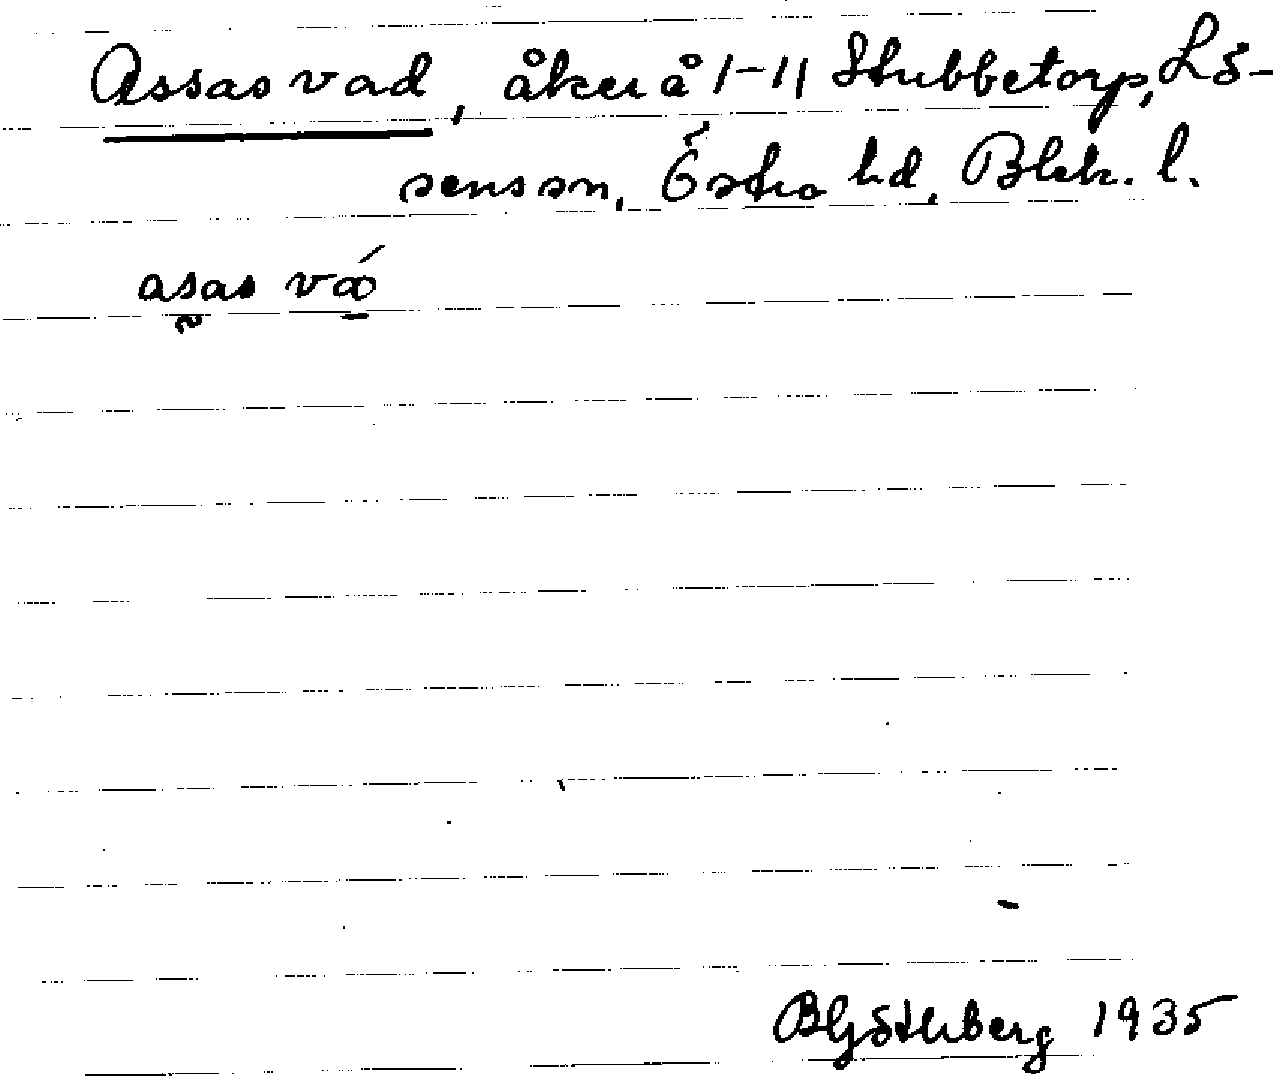 Assasvad, åker å 1-11 Stubbetorp, Lö-
sensson, Östra hd, Blek. l.
asas vá
BGötherberg 1935